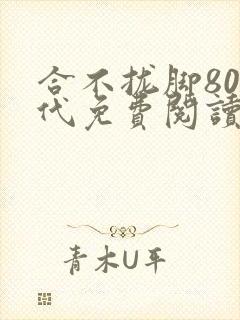 合不拢脚80
代免費閱讀
青木U平